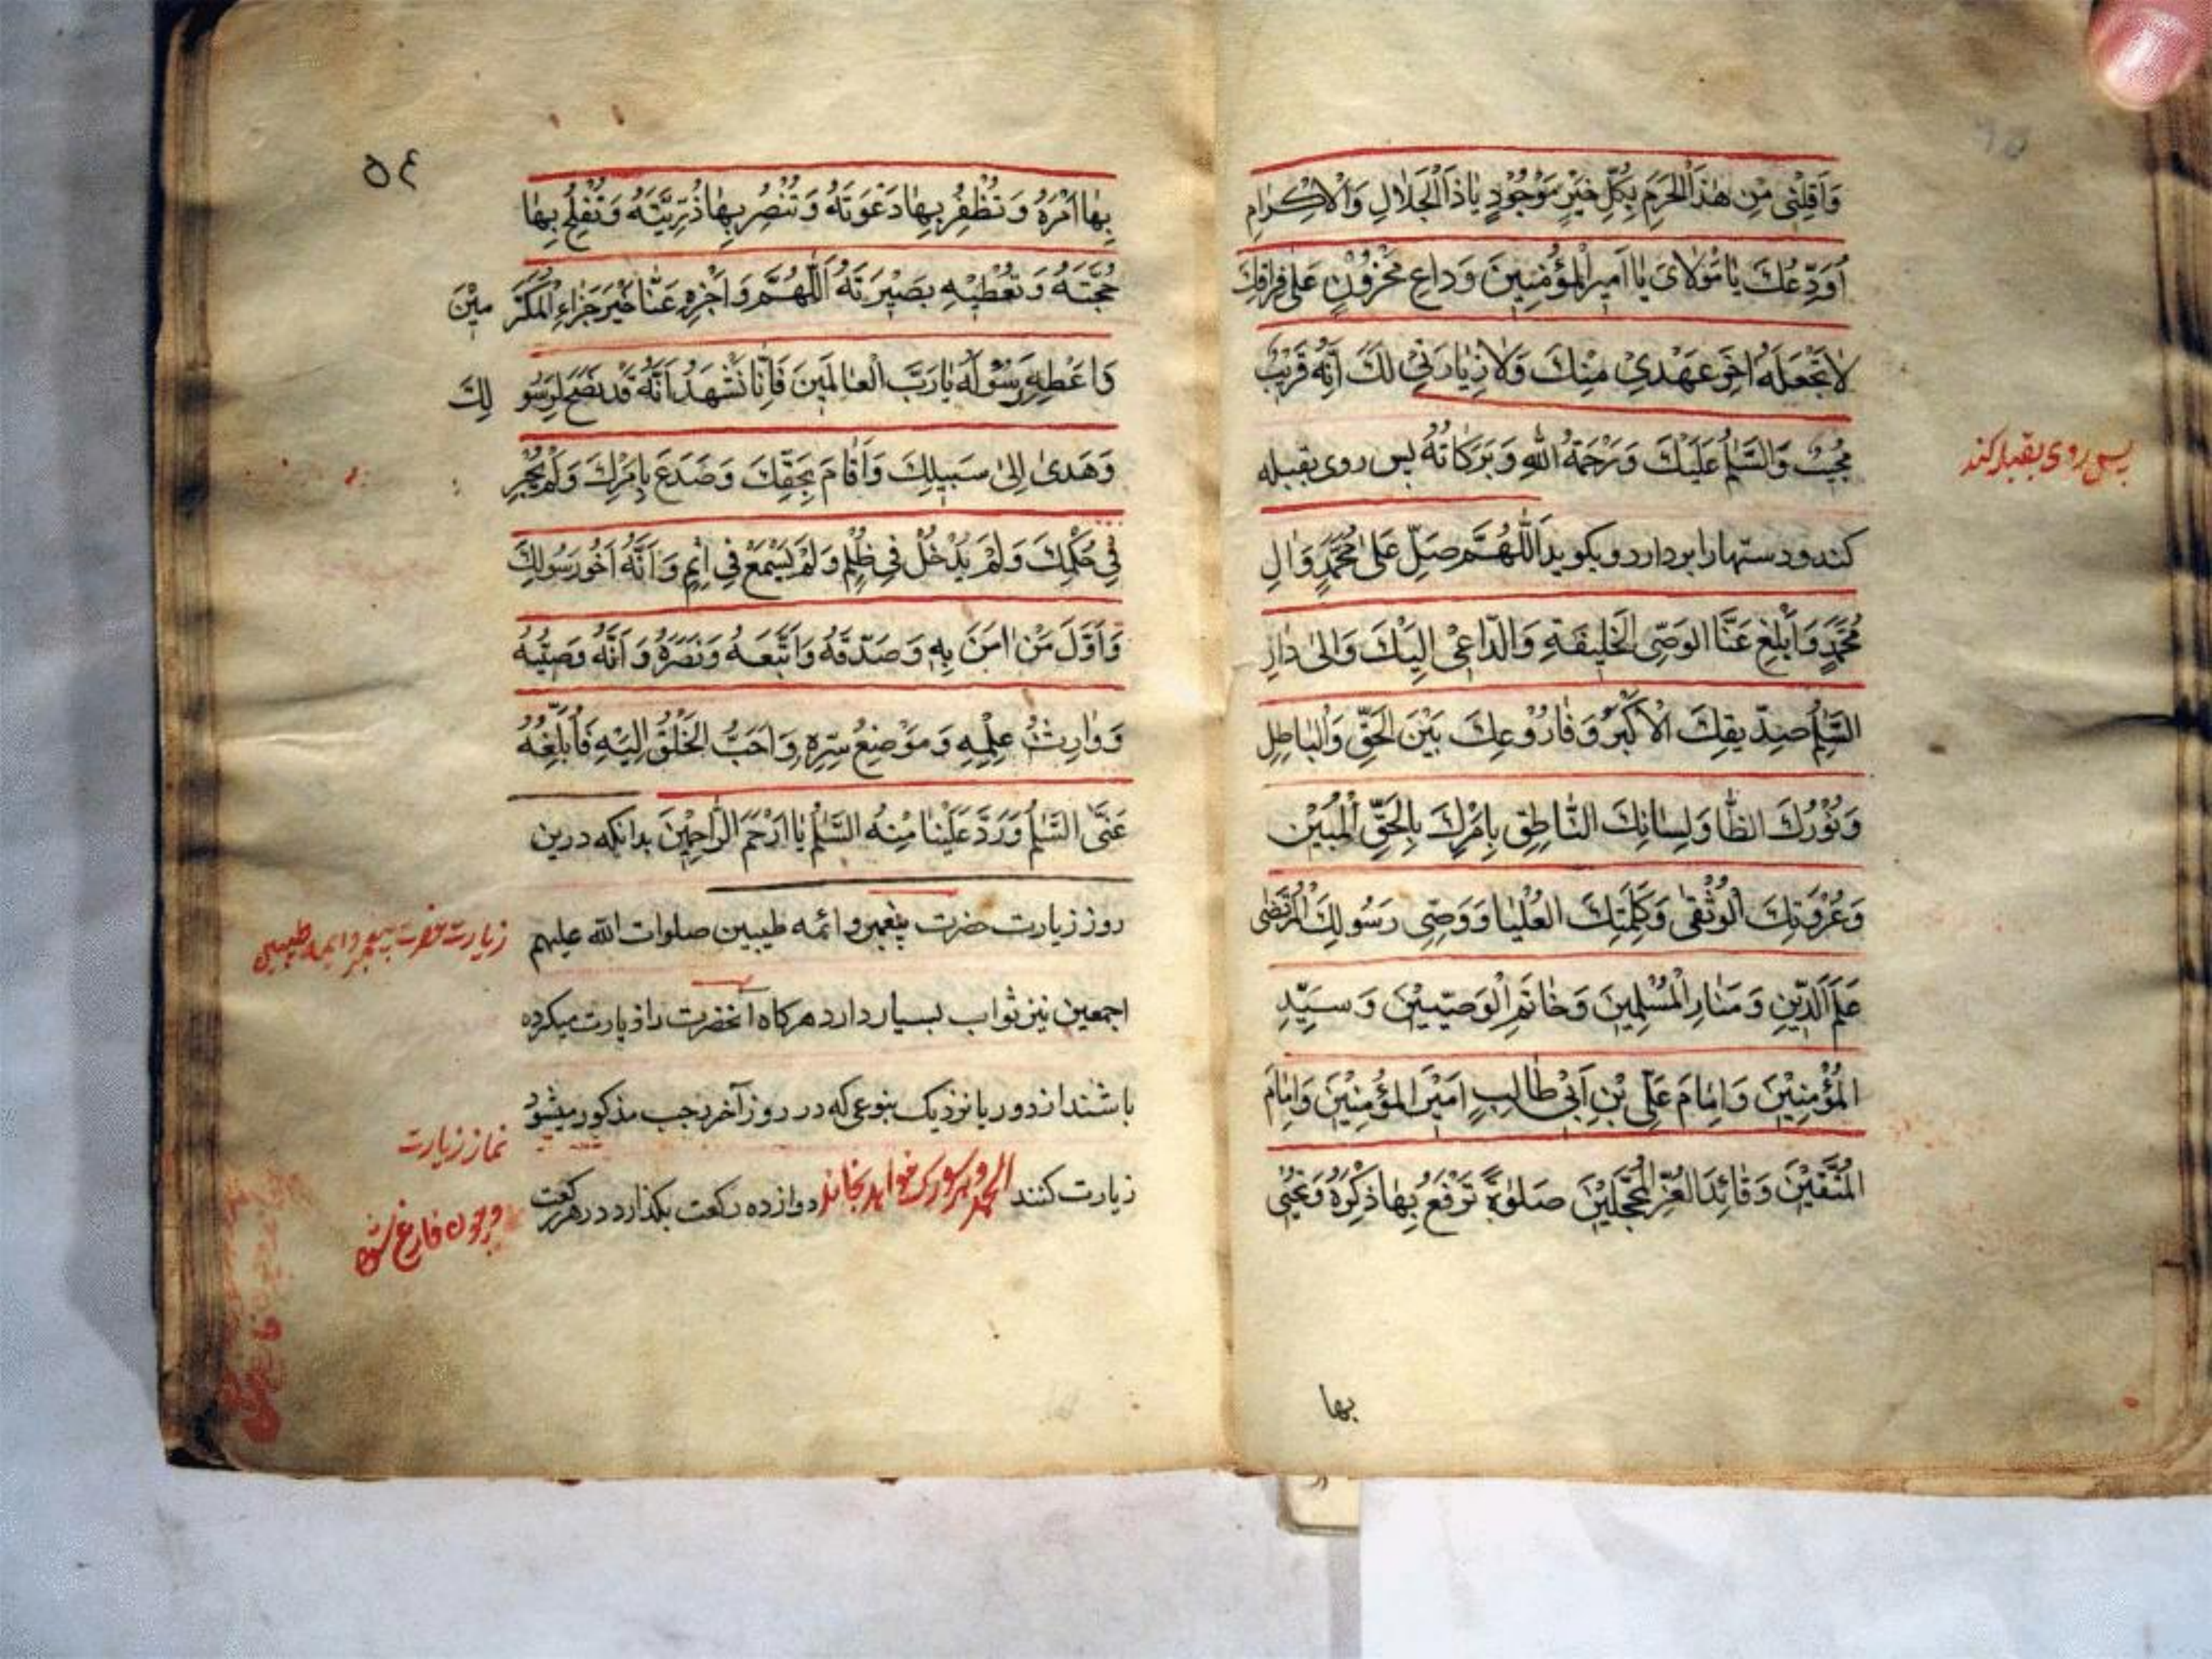 وَاَقِلْنِی مِن هٰذَا الْحَرَمِ بِكُلِّ خَيْرٍ مَوْجُودٍ يٰاذَا الْجَلٰالِ وَالْاِكْرٰامِ
اُوَدِّعُكَ يٰا مَوْلٰایَ يٰا اَمِيرَ الْمُؤْمِنِينَ وَدٰاعِ مَحْزُوُنٍ عَلٰی فِرٰاقِكَ
لٰا تَجْعَلَهُ اٰخِوَ عَهْدِیْ مِنْكَ وَلٰا زِيٰارَتِیْ لَكَ اِنَّهُ قَرِيْبٌ
مُجِيْبٌ وَالسَّلٰمُ عَلَيْكَ وَرَحْمَةُ اللهِ وَبَرَكٰاتُهُ پس روی بقبله
پس روی بقبله کند
کند ودستها را بردارد وبکوید اَللّٰهُمَّ صَلِّ عَلٰی مُحَمَّدٍ وَاٰلِ
مُحَمَّدٍ وَاَبْلِغْ عَنَّا الوَصِّی الْخَلِيفَةِ وَالدّٰاعِیْ اِلَيْكَ وَاِلٰی دٰارِ
السَّلٰمِ صِدّيقِكَ الْاَكْبَرِ وَفٰارُوْعِكَ بَيْنَ الْحَقِّ وَالْبٰاطِلِ
وَنُوْرُكَ الظّٰا وَلِسٰانِكَ النّٰاطِقِ بِاَمْرِكَ بِالْحَقِّ الْمُبِيْنِ
وَعُرْوَتِكَ الْوُثْقٰی وَكَلِمَتِكَ الْعُلْيٰا وَوَصِّی رَسُولِكَ الْمُرْتَضٰی
عَلَمِ الدِّينِ وَمَنٰارِ الْمُسْلِمِينَ وَخٰاتَمِ الْوَصِيّيِيْنَ وَسَيِّدِ
الْمُؤْمِنِيْنَ وَاِمٰامَ عَلِّی بْنِ اَبِیْ طٰالِبٍ اَمِيْرَ الْمُؤْمِنِيْنَ وَاِمٰامَ
الْمُتَّقِيْنَ وَقٰائِدَ الْغُرِّ الْمُحَجَّلِيْنَ صَلٰوةً تَرْفَعُ بِهٰا ذِكْرَهُ وَتُحْيِی
بها
٥٤
بِهٰا اَمْرَهُ وَتُظْفِرُ بِهٰا دَعْوَتَهُ وَتُنْصِرُ بِهٰا ذُرِّيَّتَهُ وَتُفْلِحُ بِهٰا
حُجَّتَهُ وَتُعْطِيْهِ بَصِيْرَتَهُ اَللّٰهُمَّ وَاَجْزِهِ عَنّٰا خَيْرَ جَزٰاءِ الْمُكَرَّ مِيْنَ
وَاعْطِهِ سُؤْلَهُ يٰا رَبَّ الْعٰالَمِينَ فَاِنّٰا نَشْهَدُ اَنَّهُ قَدْ نَصَحَ لِرَسُو لِكَ
وَهَدٰی اِلٰی سَبِيلِكَ وَاَقٰامَ بِحَقِّكَ وَصَدَعَ بِاَمْرِكَ وَلَمْ يَجُرِ
فِی حُكْمِكَ وَلَمْ يَدْخُلْ فِی ظُلْمٍ وَلَمْ يَسْمَعْ فِی اِثمٍ وَاَنَّهُ اَخُو رَسُولِكَ
وَاَوَّلَ مَنْ اٰمَنَ بِهِ وَصَدَّقَهُ وَاتَّبَعَهُ وَنَصَرَهُ وَاَنَّهُ وَصِيُّهُ
وَوٰارِثُ عِلْمِهِ وَمَوْضِعُ سِرِّهِ وَاَحَبُّ الْخَلْقِ اِلَيْهِ فَاَبْلِغْهُ
عَنَّی السَّلٰمُ وَرَدَّ عَلَيْنٰا مِنْهُ السَّلٰمُ يٰا اَرْحَمَ الرّٰاحِمِيْنَ بدانکه درین
روز زیارت حضرت پیغمبر وائمه طیبین صلوات الله علیهم
زیارت حضرت پیغمبر وائمه طیبین
اجمعین نیز ثواب بسیار دارد هرکاه آنحضرت را زیارت میکرده
باشند از دور یا نزدیک بنوعی که در روز آخر رجب مذکور میشود
نماز زیارت
زیارت کنند دوازده رکعت بکذارد در هر رکعت الحمد وهر سوره که خواهد بخاند
وچون فارغ شود